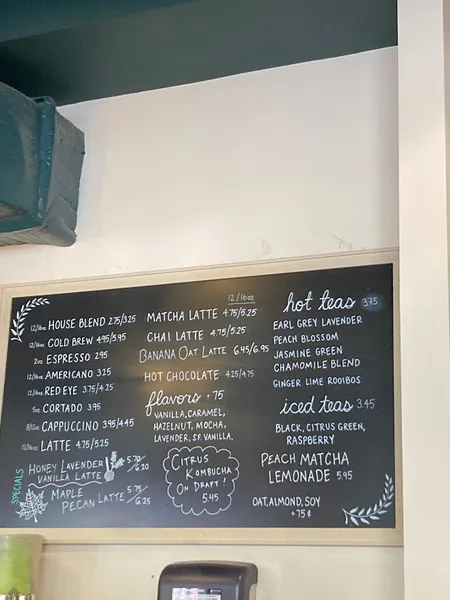 12/16oz HOUSE BLEND 2.75/3.25
12/16oz COLD BREW 4.95/5.95
2oz ESPRESSO 2.95
12/16oz AMERICANO 3.25
12/16oz RED EYE 3.75/4.25
5oz CORTADO 3.95
8/12oz CAPPUCCINO 3.95/4.45
12/16oz LATTE 4.75/5.25
SPECIALS
HONEY LAVENDER 5.70/
VANILLA LATTE 6.20
MAPLE 5.75/
PECAN LATTE 6.25
12/16oz
MATCHA LATTE 4.75/5.25
CHAI LATTE 4.75/5.25
BANANA OAT LATTE 6.45/6.95
HOT CHOCOLATE 4.25/4.75
flavors +.75
VANILLA, CARAMEL,
HAZELNUT, MOCHA,
LAVENDER, S.F. VANILLA,
CITRUS
KOMBUCHA
ON DRAFT!
5.45
hot teas 3.75
EARL GREY LAVENDER
PEACH BLOSSOM
JASMINE GREEN
CHAMOMILE BLEND
GINGER LIME ROOIBOS
iced teas 3.45
BLACK, CITRUS GREEN,
RASPBERRY
PEACH MATCHA
LEMONADE 5.95
OAT, ALMOND, SOY
+75¢